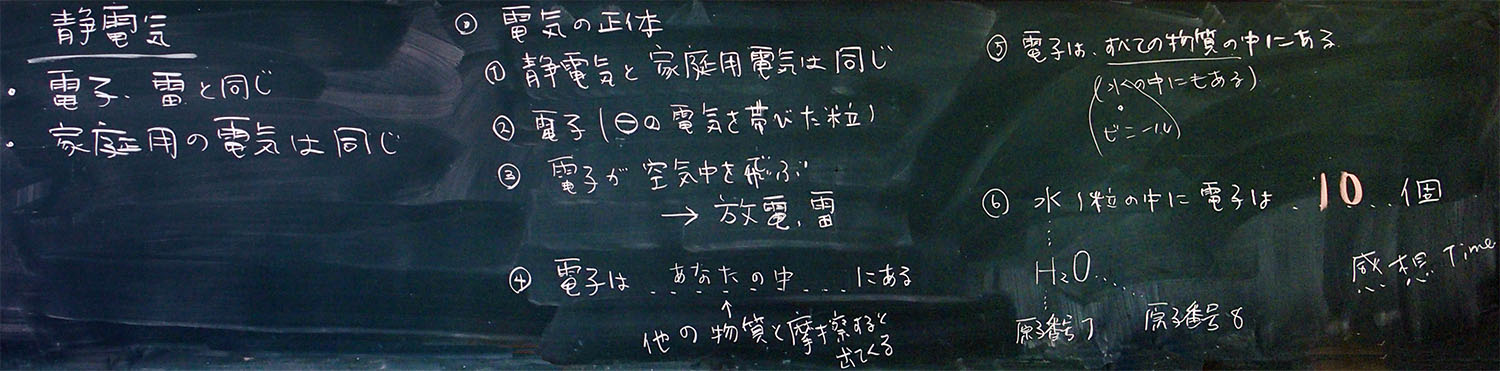 静電気
・電子、雷と同じ
・家庭用の電気は同じ
◎ 電気の正体
① 静電気と家庭用電気は同じ
② 電子(⊖の電気を帯びた粒)
③ 電子が空気中を飛ぶ
→ 放電、雷
④ 電子は あなたの中 にある
↑
他の物質と摩擦すると
出てくる
⑤ 電子は、すべての物質の中にある
(水の中にもある)
ビニール
⑥ 水1粒の中に電子は 10 個
H₂O
原子番号1 原子番号8
感想 Time